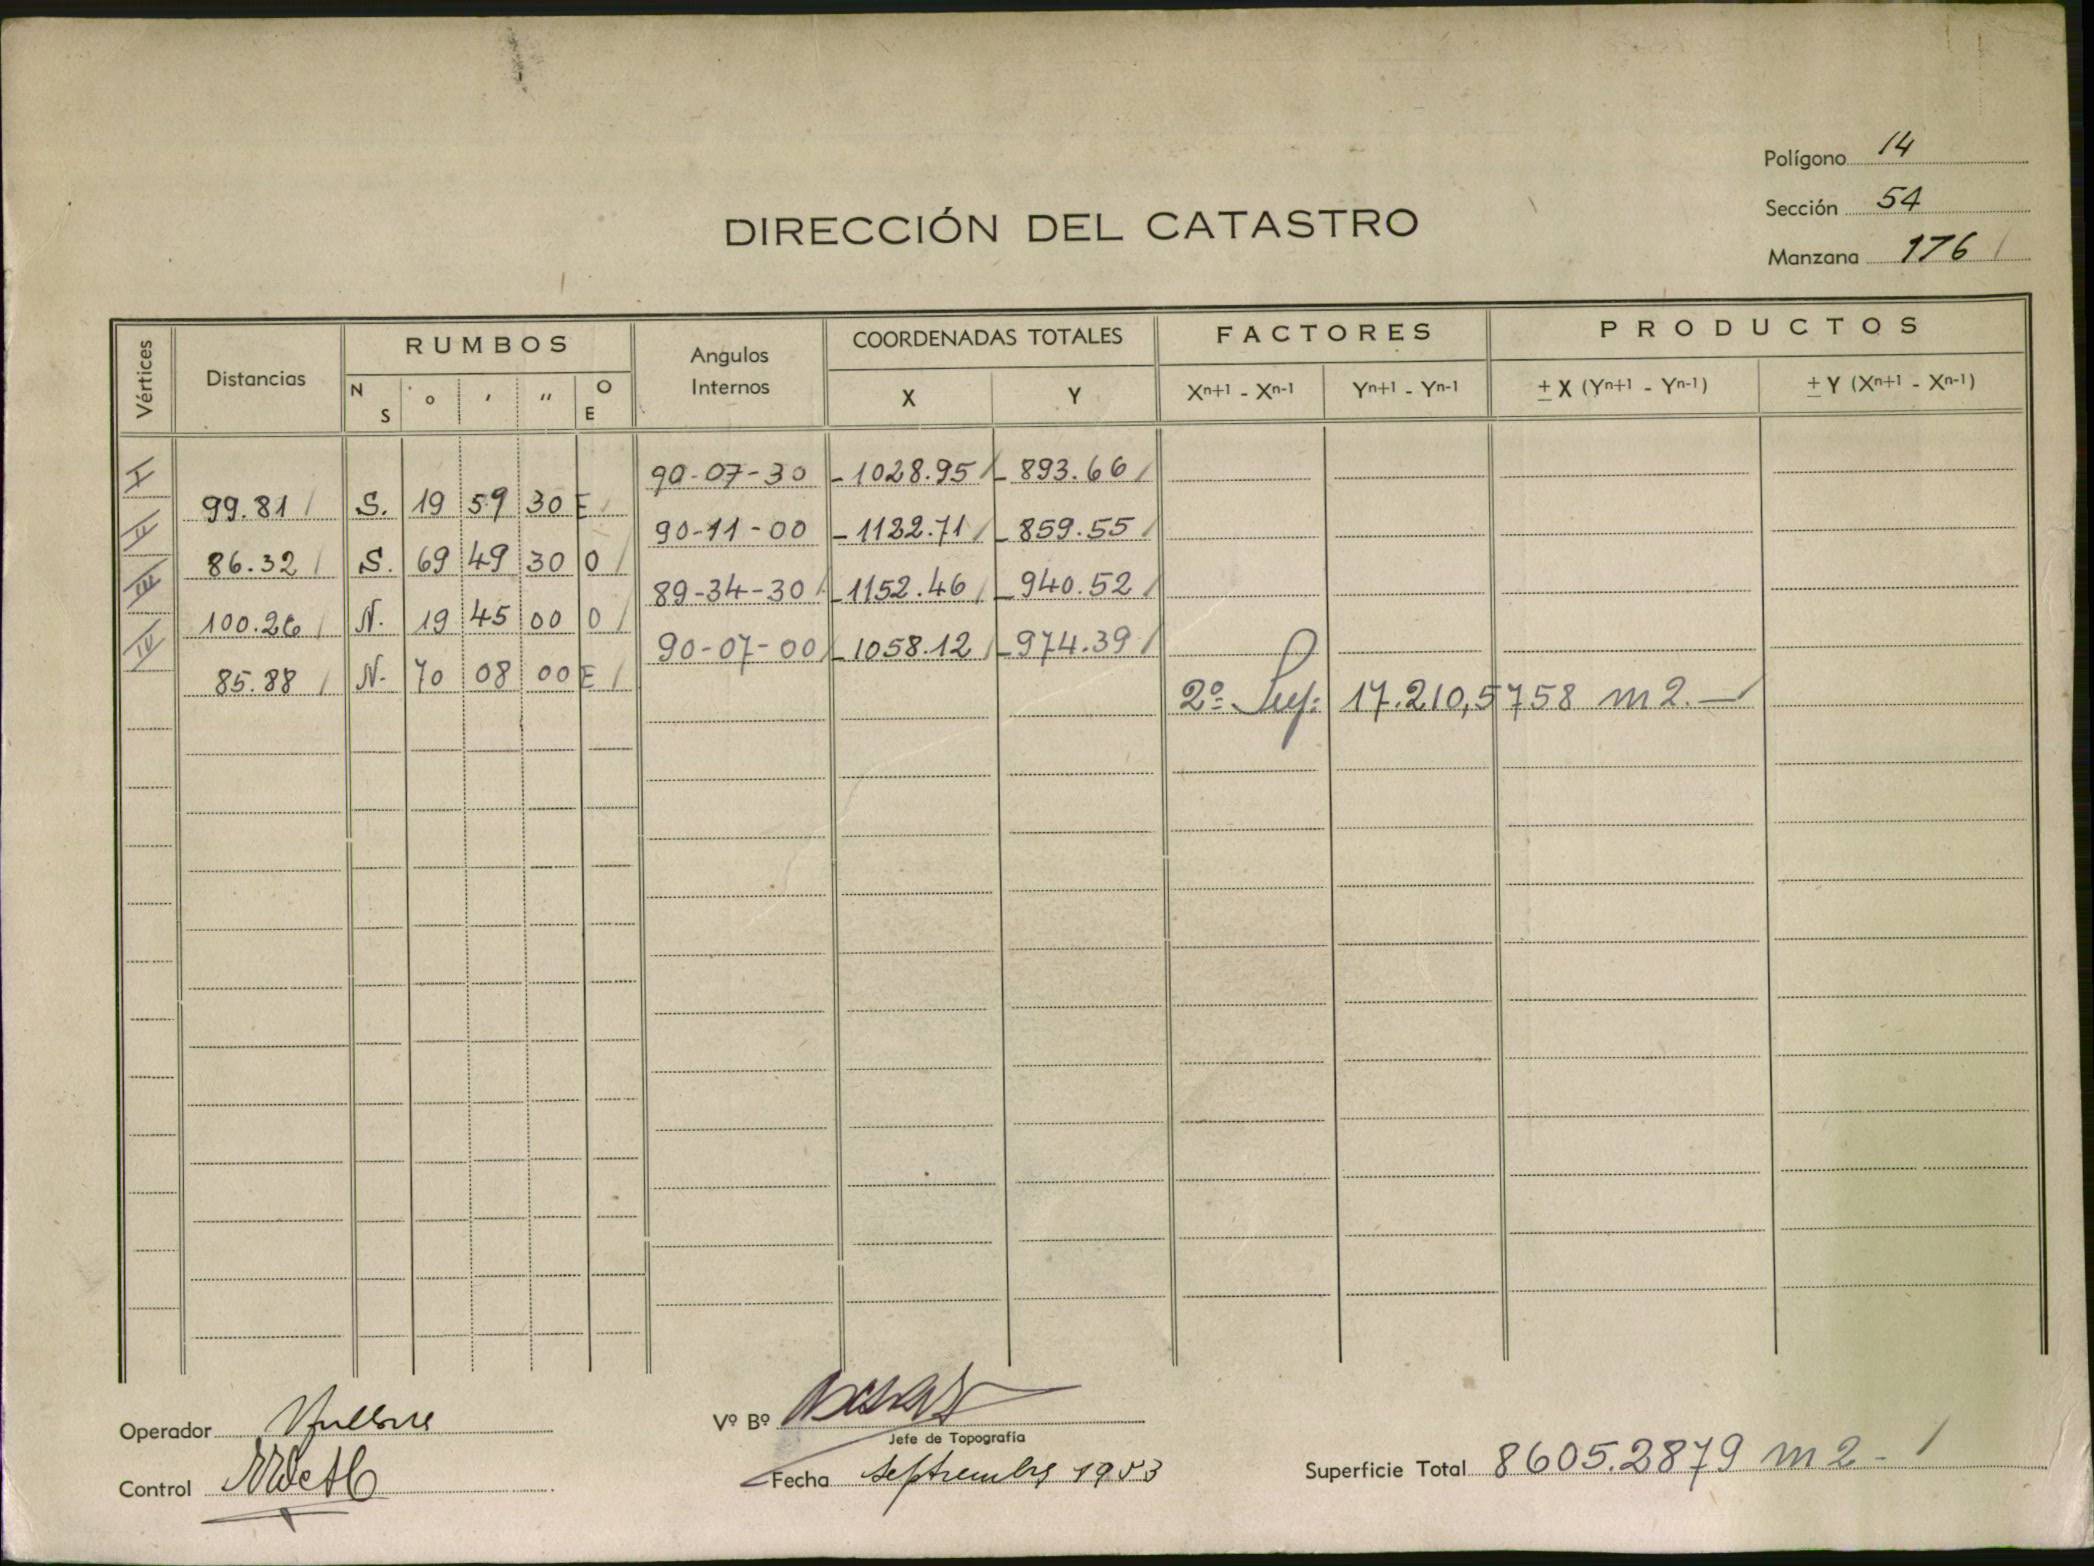 Polígono 14
Sección 54
Manzana 176
DIRECCIÓN DEL CATASTRO
Vértices Distancias RUMBOS Angulos Internos COORDENADAS TOTALES FACTORES PRODUCTOS
N S ° ′ ″ O E X Y Xn+1 - Xn-1 Yn+1 - Yn-1 ± X (Yn+1 - Yn-1) ± Y (Xn+1 - Xn-1)
I 90-07-30 -1028.95 -893.66
99.81 S. 19 59 30 E
II 90-11-00 -1122.71 -859.55
86.32 S. 69 49 30 O
III 89-34-30 -1152.46 -940.52
100.26 N. 19 45 00 O
IV 90-07-00 -1058.12 -974.39
85.88 N. 70 08 00 E
2º Sup: 17.210,5758 m2.-
Operador
Vº Bº
Jefe de Topografía
Control
Fecha septiembre 1953
Superficie Total 8605.2879 m2-